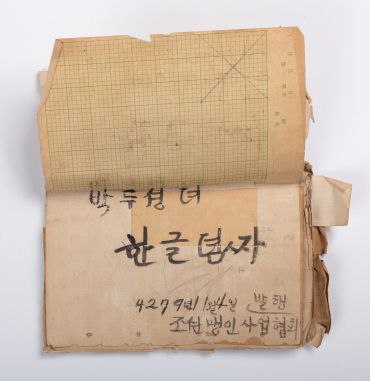 박두성 저
한글 점자
4279年 1월 4일 발행
조선맹인사업협회